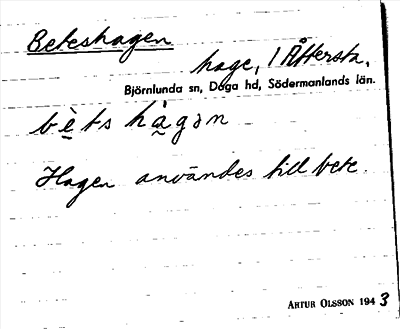 Beteshagen
hage, 1 Åttersta.
Björnlunda sn, Daga hd, Södermanlands län.
bè̱ts hà̱gən
Hagen användes till bete.
ARTUR OLSSON 1943